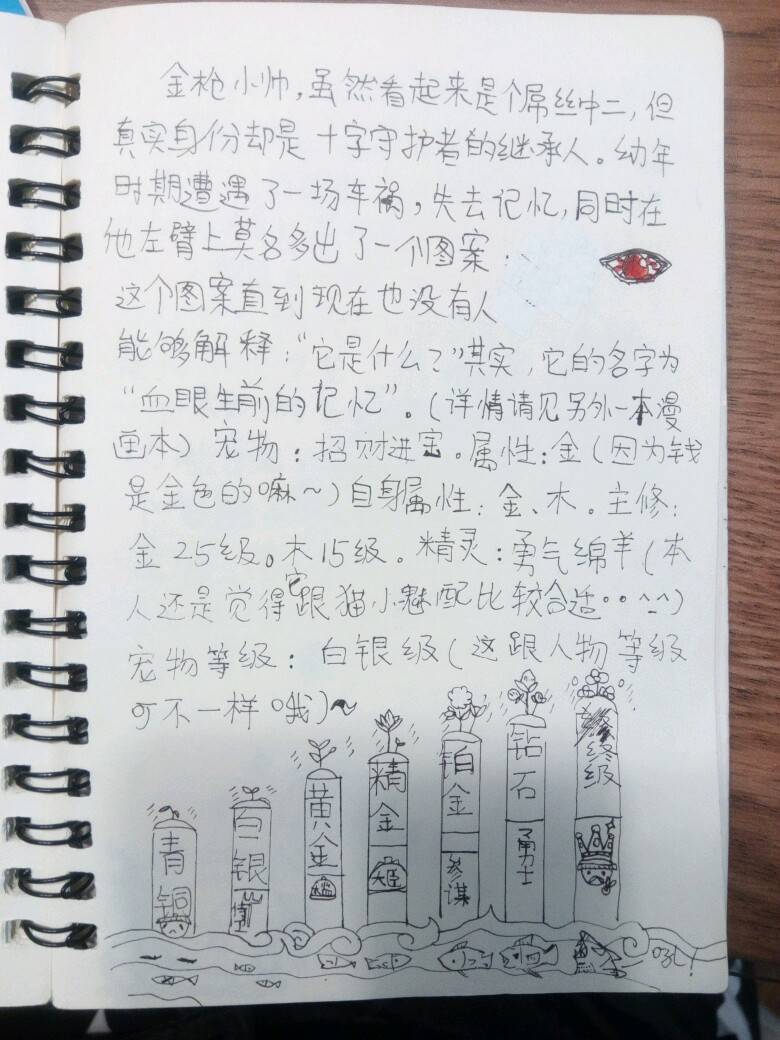 金枪小帅，虽然看起来是个屌丝中二，但
真实身份却是十字守护者的继承人。幼年
时期遭遇了一场车祸，失去记忆，同时在
他左臂上莫名多出了一个图案：
这个图案直到现在也没有人
能够解释：“它是什么？”其实，它的名字为
“血眼生前的记忆”。（详情请见另外一本漫
画本）宠物：招财进宝。属性：金（因为钱
是金色的嘛~）自身属性：金、木。主修：
金25级。木15级。精灵：勇气绵羊（本
人还是觉得它跟猫小魅配比较合适··^_^）
宠物等级：白银级（这跟人物等级
可不一样哦）~
青铜
白银
黄金
精金
大臣
铂金
参谋
钻石
勇士
终级